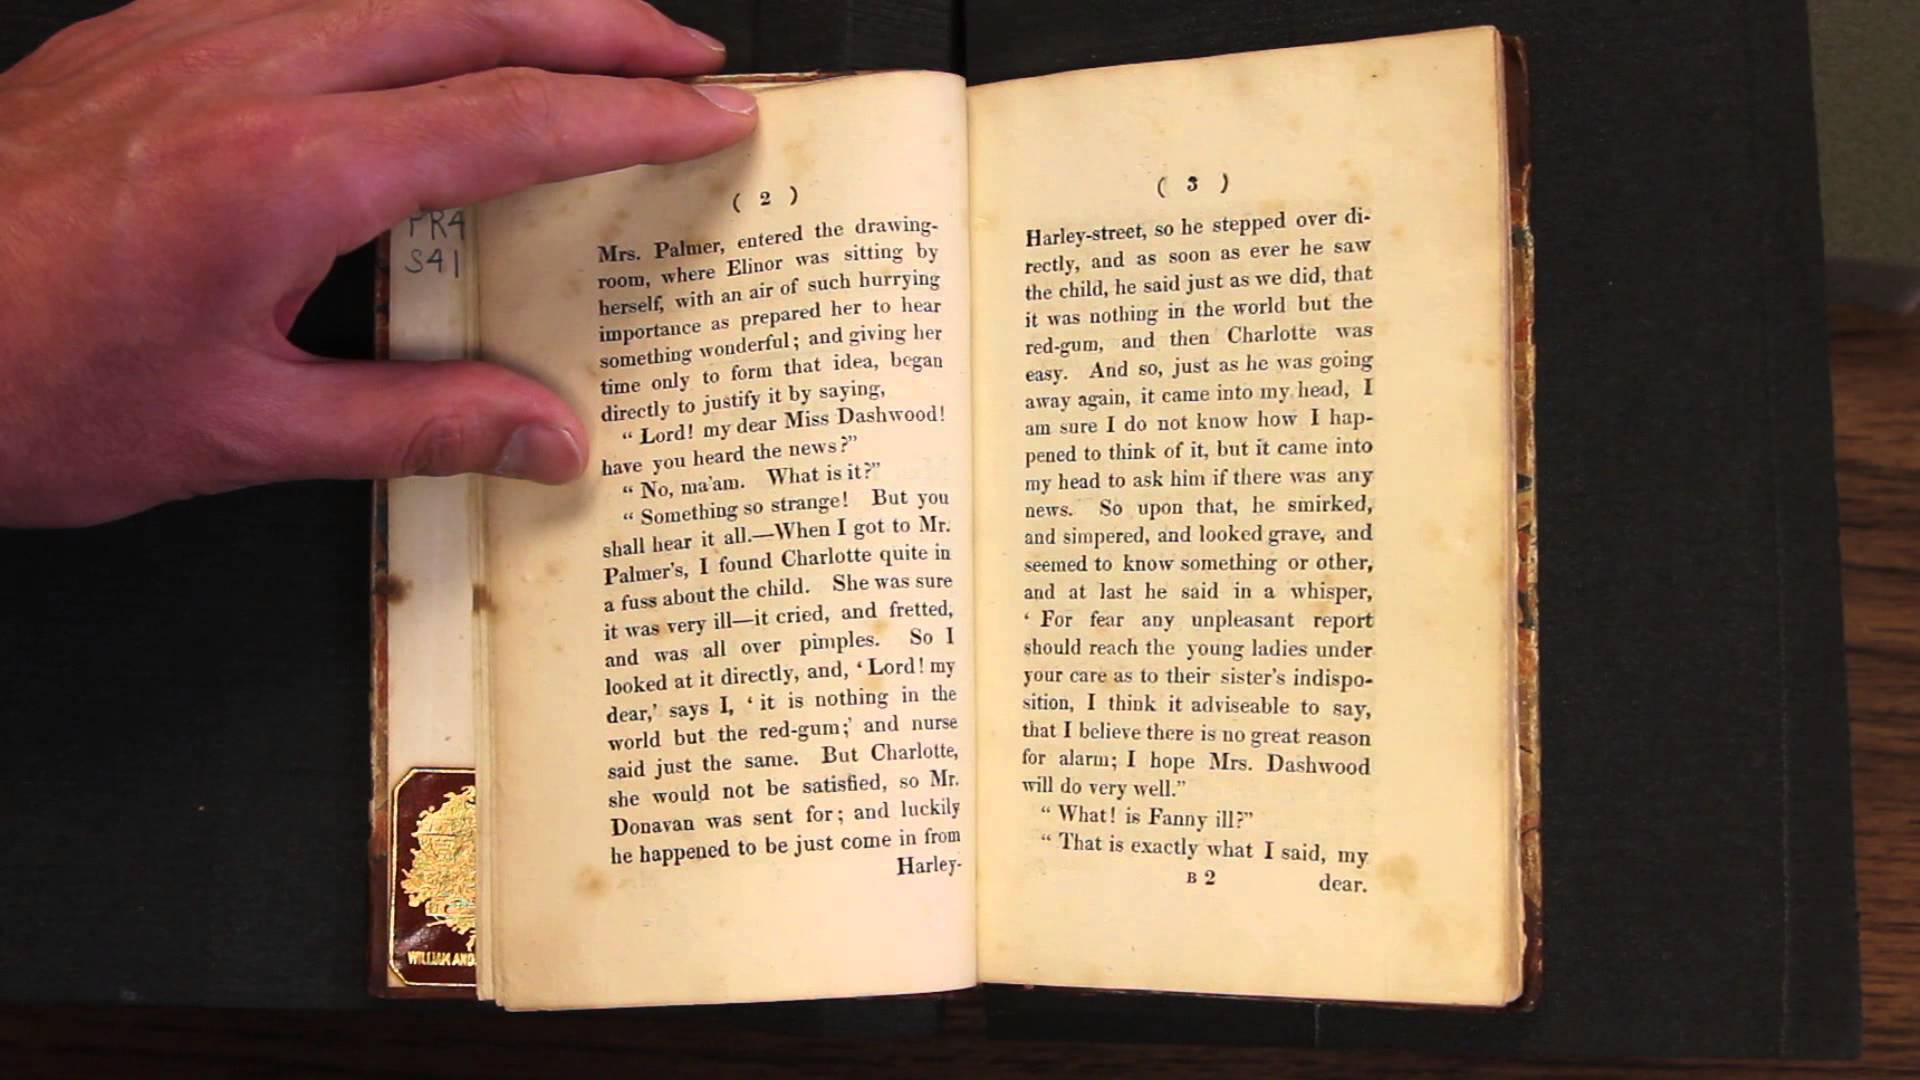 PR4
S41
( 2 )
Mrs. Palmer, entered the drawing-
room, where Elinor was sitting by
herself, with an air of such hurrying
importance as prepared her to hear
something wonderful; and giving her
time only to form that idea, began
directly to justify it by saying,
“ Lord! my dear Miss Dashwood!
have you heard the news?”
“ No, ma'am. What is it?”
“ Something so strange! But you
shall hear it all.—When I got to Mr.
Palmer's, I found Charlotte quite in
a fuss about the child. She was sure
it was very ill—it cried, and fretted,
and was all over pimples. So I
looked at it directly, and, ‘ Lord! my
dear,’ says I, ‘ it is nothing in the
world but the red-gum;’ and nurse
said just the same. But Charlotte,
she would not be satisfied, so Mr.
Donavan was sent for; and luckily
he happened to be just come in from
Harley-
WILLIAM AND
( 3 )
Harley-street, so he stepped over di-
rectly, and as soon as ever he saw
the child, he said just as we did, that
it was nothing in the world but the
red-gum, and then Charlotte was
easy. And so, just as he was going
away again, it came into my head, I
am sure I do not know how I hap-
pened to think of it, but it came into
my head to ask him if there was any
news. So upon that, he smirked,
and simpered, and looked grave, and
seemed to know something or other,
and at last he said in a whisper,
‘ For fear any unpleasant report
should reach the young ladies under
your care as to their sister's indispo-
sition, I think it adviseable to say,
that I believe there is no great reason
for alarm; I hope Mrs. Dashwood
will do very well.”
“ What! is Fanny ill?”
“ That is exactly what I said, my
B 2 dear.